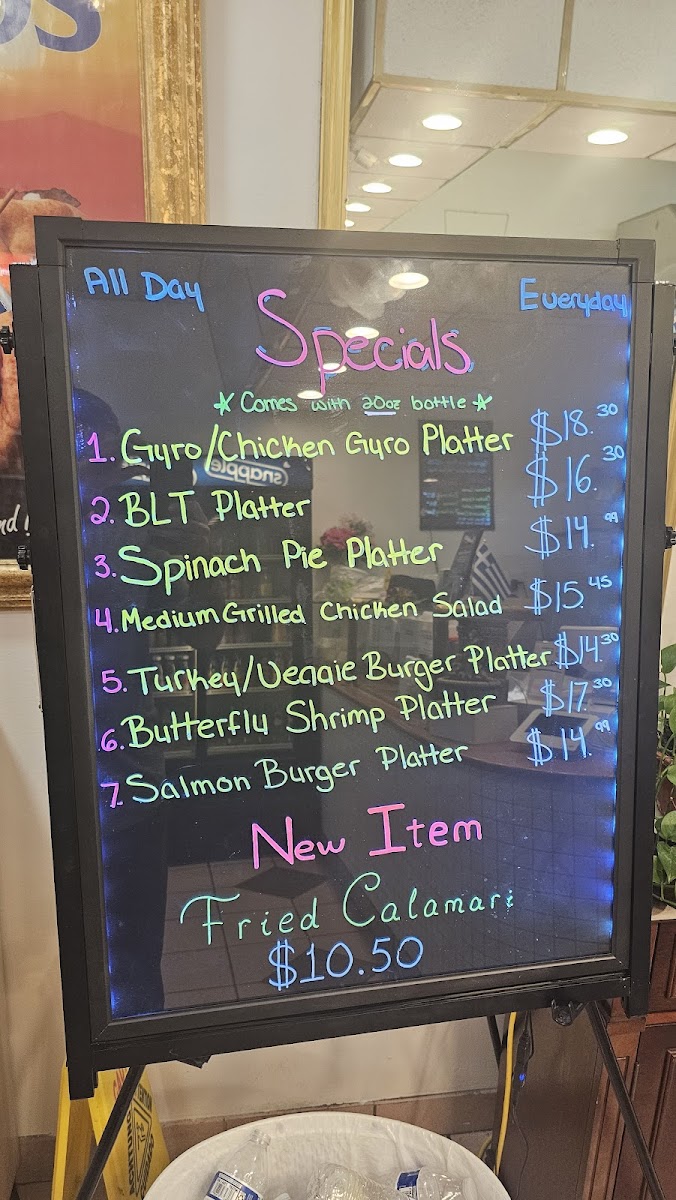 OS
All Day Everyday
Specials
☆ Comes with 20oz bottle ☆
1. Gyro/Chicken Gyro Platter $18.30
2. BLT Platter $16.30
3. Spinach Pie Platter $14.99
4. Medium Grilled Chicken Salad $15.45
5. Turkey/Veggie Burger Platter $14.30
6. Butterfly Shrimp Platter $17.30
7. Salmon Burger Platter $14.99
New Item
Fried Calamari
$10.50
snapple
nd!